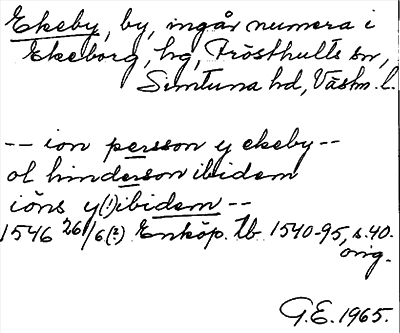 Ekeby, by, ingår numera i
Ekeborg, hg, Frösthults sn,
Simtuna hd, Västm. l.
-- ion persson y ekeby --
ol hinderson ibidem
iöns y(!)ibidem --
1546 26/6(?) Enköp. tb 1540-95, s. 40.
orig.
G.E. 1965.